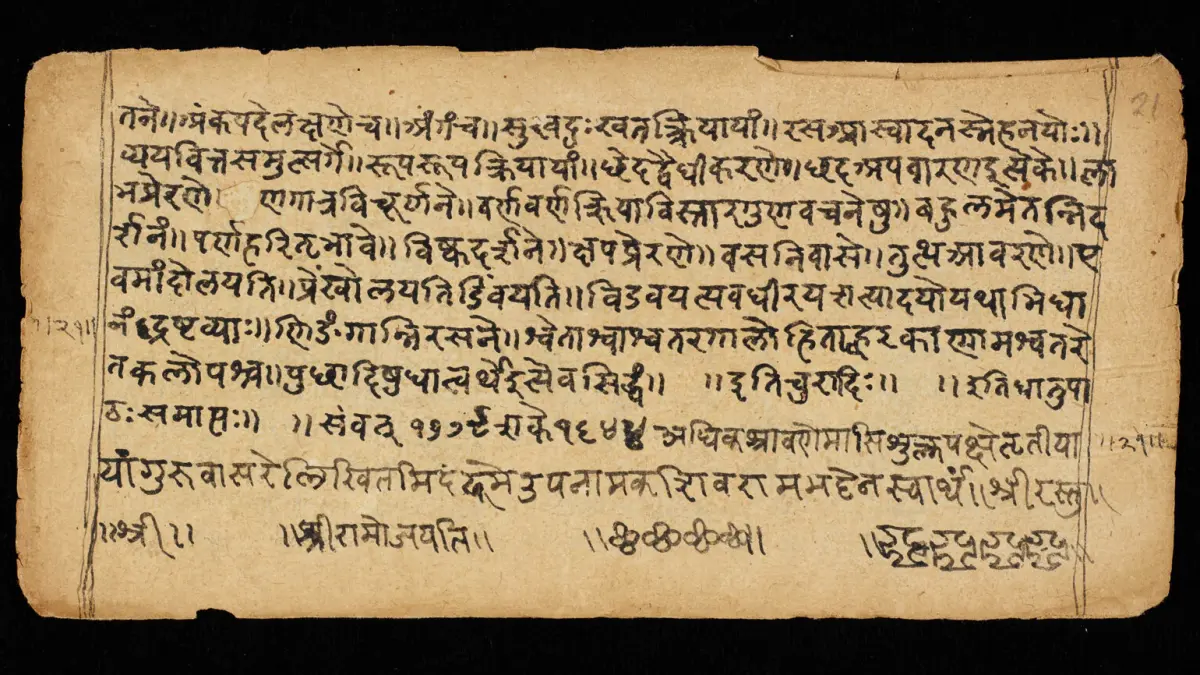 तने॥ अंक पदे लक्षणे च॥ अंग च॥ सुख दुःख तत्क्रियायां॥ रस आस्वादनस्नेहनयोः॥
व्यय वित्तसमुत्सर्गे॥ रूप रूपक्रियायां॥ छेद द्वैधीकरणे॥ छद अपवारण इत्येके॥ ला
भ प्रेरणे॥ व्रण गात्रविचूर्णने॥ वर्ण वर्णक्रियाविस्तारगुणवचनेषु॥ बहुलमेतन्निद
र्शनं॥ पर्ण हरितभावे॥ विष्क दर्शने॥ क्षप प्रेरणे॥ वस निवासे॥ तुत्थ आवरणे॥ ए
वमांदोलयति॥ प्रेंखोलयति विडंबयति॥ अवधीरय इत्यादयो यथाभिधा
नं द्रष्टव्याः॥ णिङंगान्निरसने॥ श्वेताश्वाश्वतरगालोडिताह्वरकाणामश्वतरे
तकलोपश्च॥ पुच्छादिषु धात्वर्थ इत्येव सिद्धं॥ ॥ इति चुरादिः॥ ॥ इति धातुपा
ठः समाप्तः॥ ॥ संवत् १७७९ शके १६४४ अधिकश्रावणे मासि शुक्लपक्षे तृतीया
यां गुरुवासरे लिखितमिदं उपनामक स्वार्थं॥ श्रीरस्तु॥
॥श्री॥ ॥श्रीरामो जयति॥
॥२१॥
॥२१॥
21